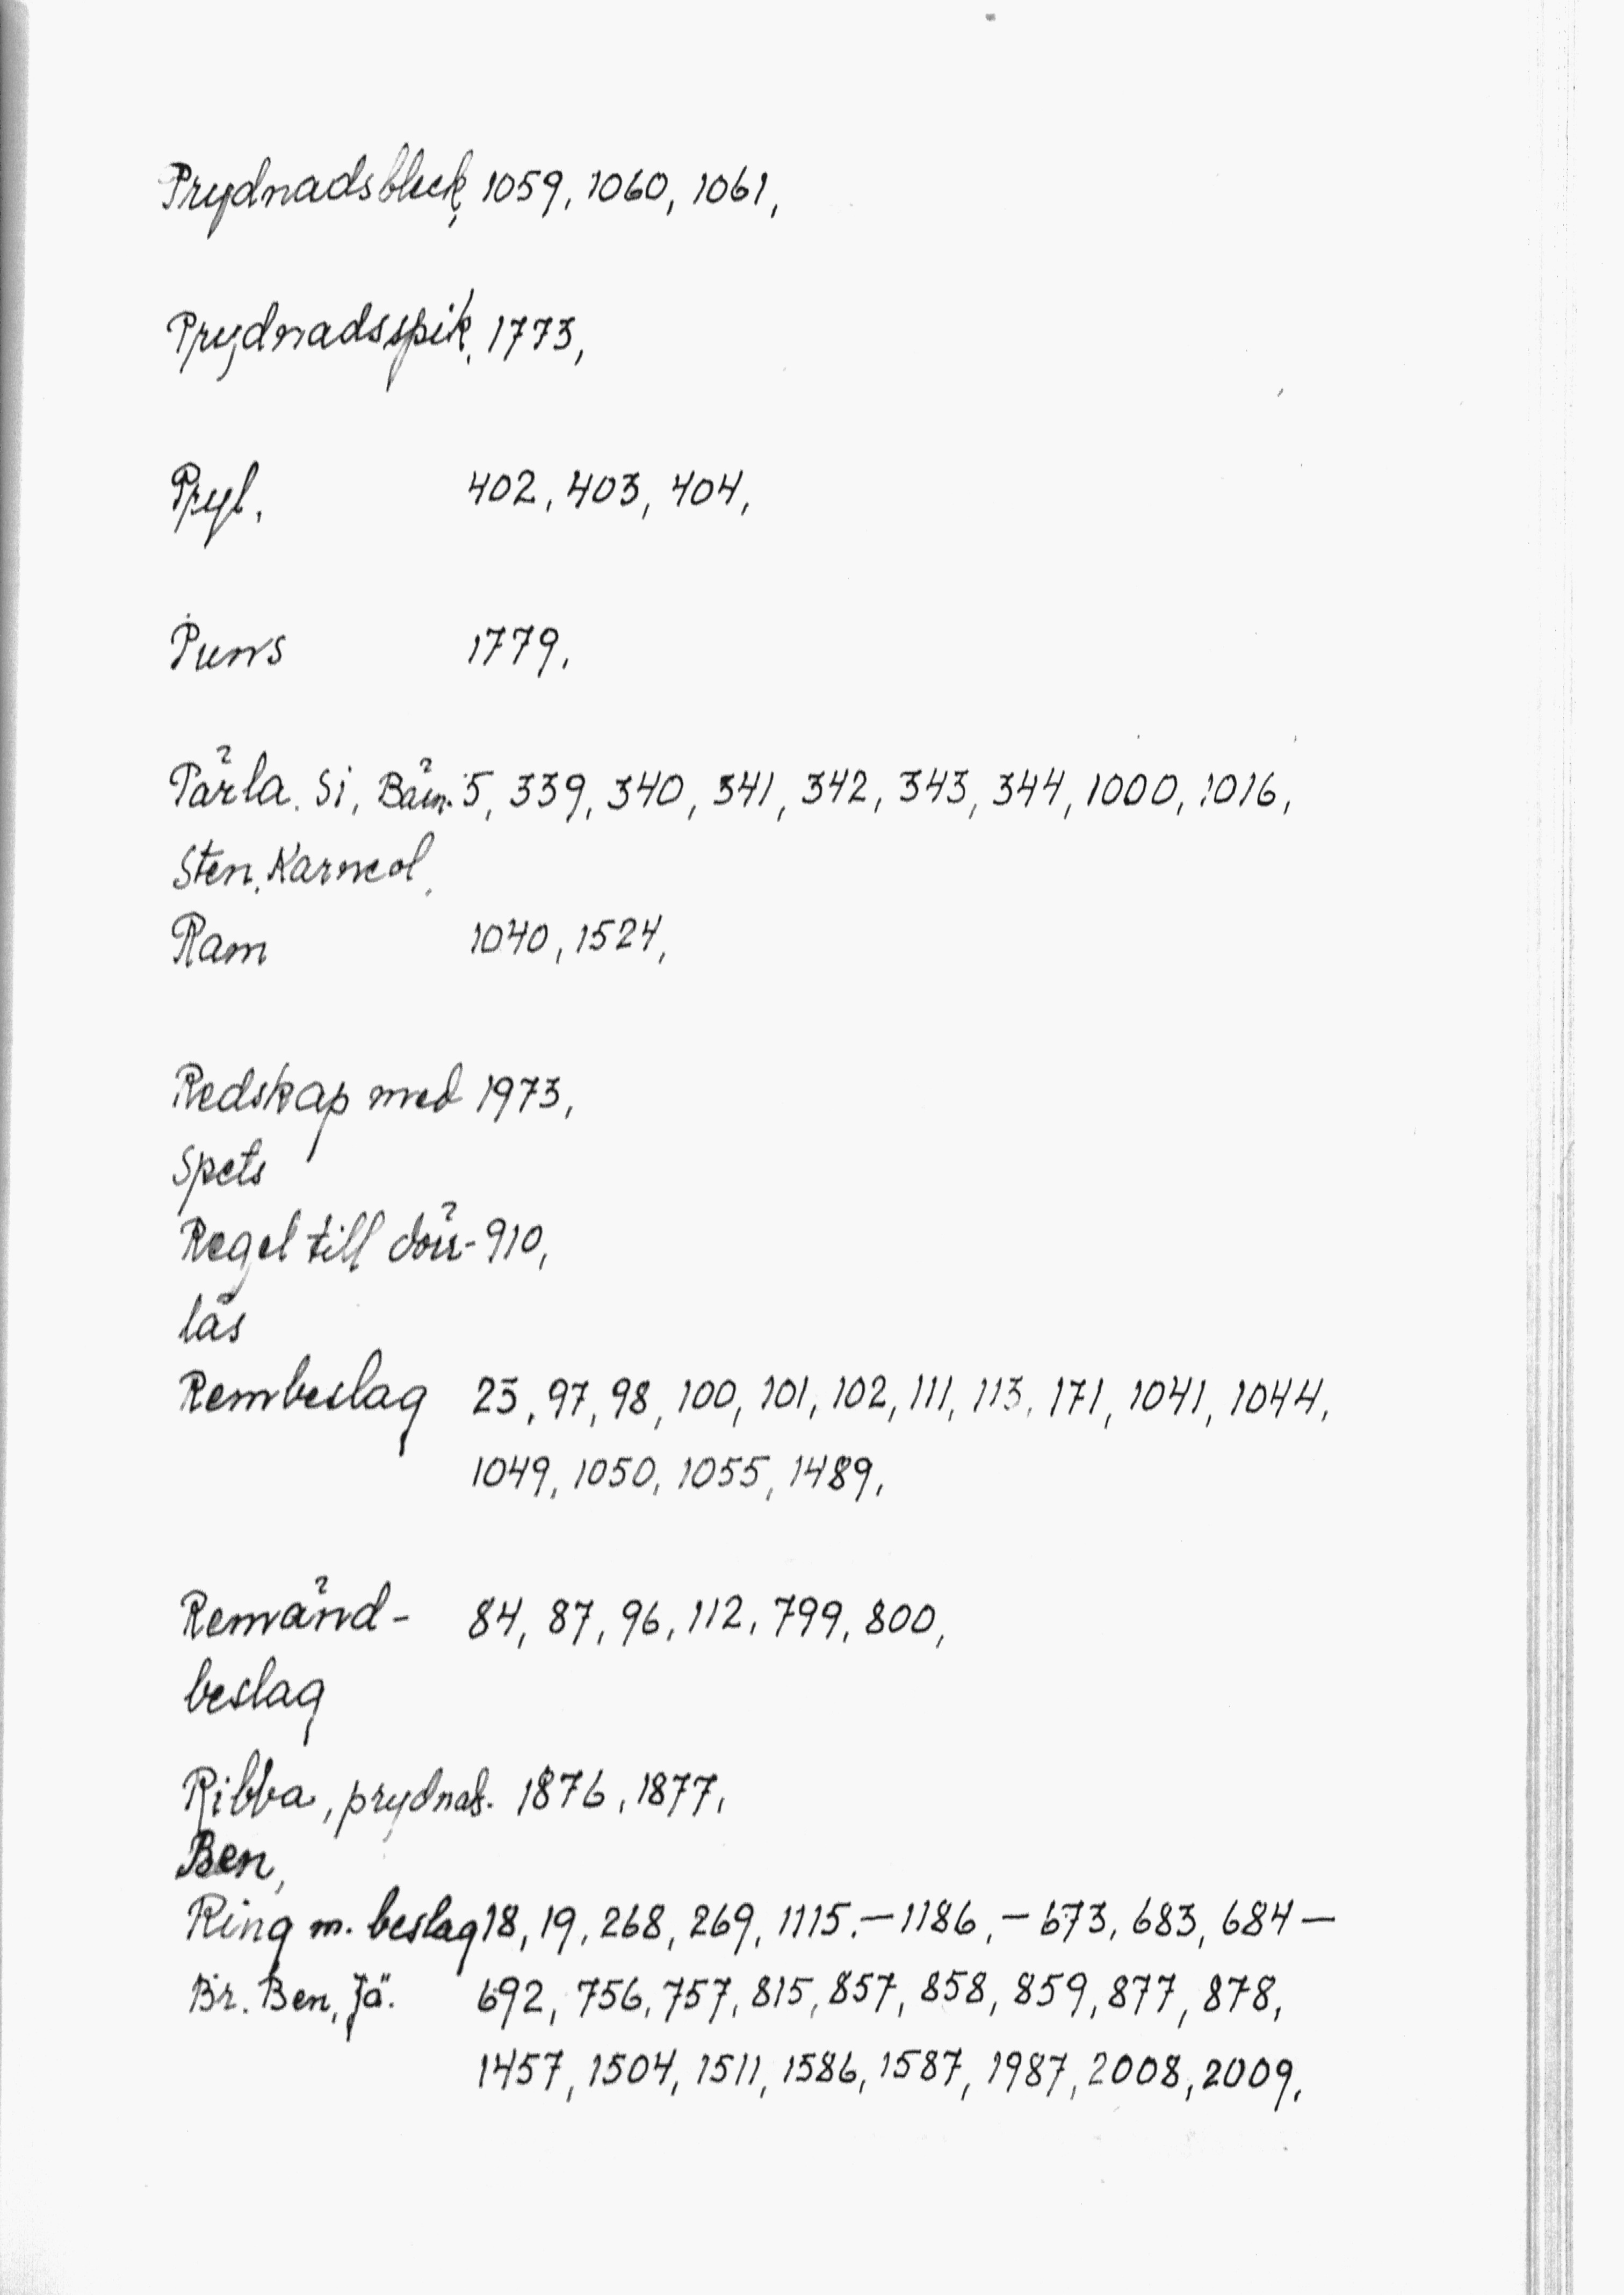 Prydnadsbleck, 1059, 1060, 1061,
Prydnadsspik, 1773,
Pryl, 402, 403, 404,
Puns 1779,
Pärla. Si, Bärn. 5, 339, 340, 341, 342, 343, 344, 1000, 1016,
Sten, Karneol,
Ram 1040, 1524,
Redskap med 1973,
Spets
Regel till dörr- 910,
lås
Rembeslag 25, 97, 98, 100, 101, 102, 111, 113, 171, 1041, 1044,
1049, 1050, 1055, 1489,
Remänd- 84, 87, 96, 112, 799, 800,
beslag
Ribba, prydnad. 1876, 1877,
Ben,
Ring m. beslag 18, 19, 268, 269, 1115.—1186,— 673, 683, 684—
Br. Ben, Jä. 692, 756, 757, 815, 857, 858, 859, 877, 878,
1457, 1504, 1511, 1586, 1587, 1987, 2008, 2009,